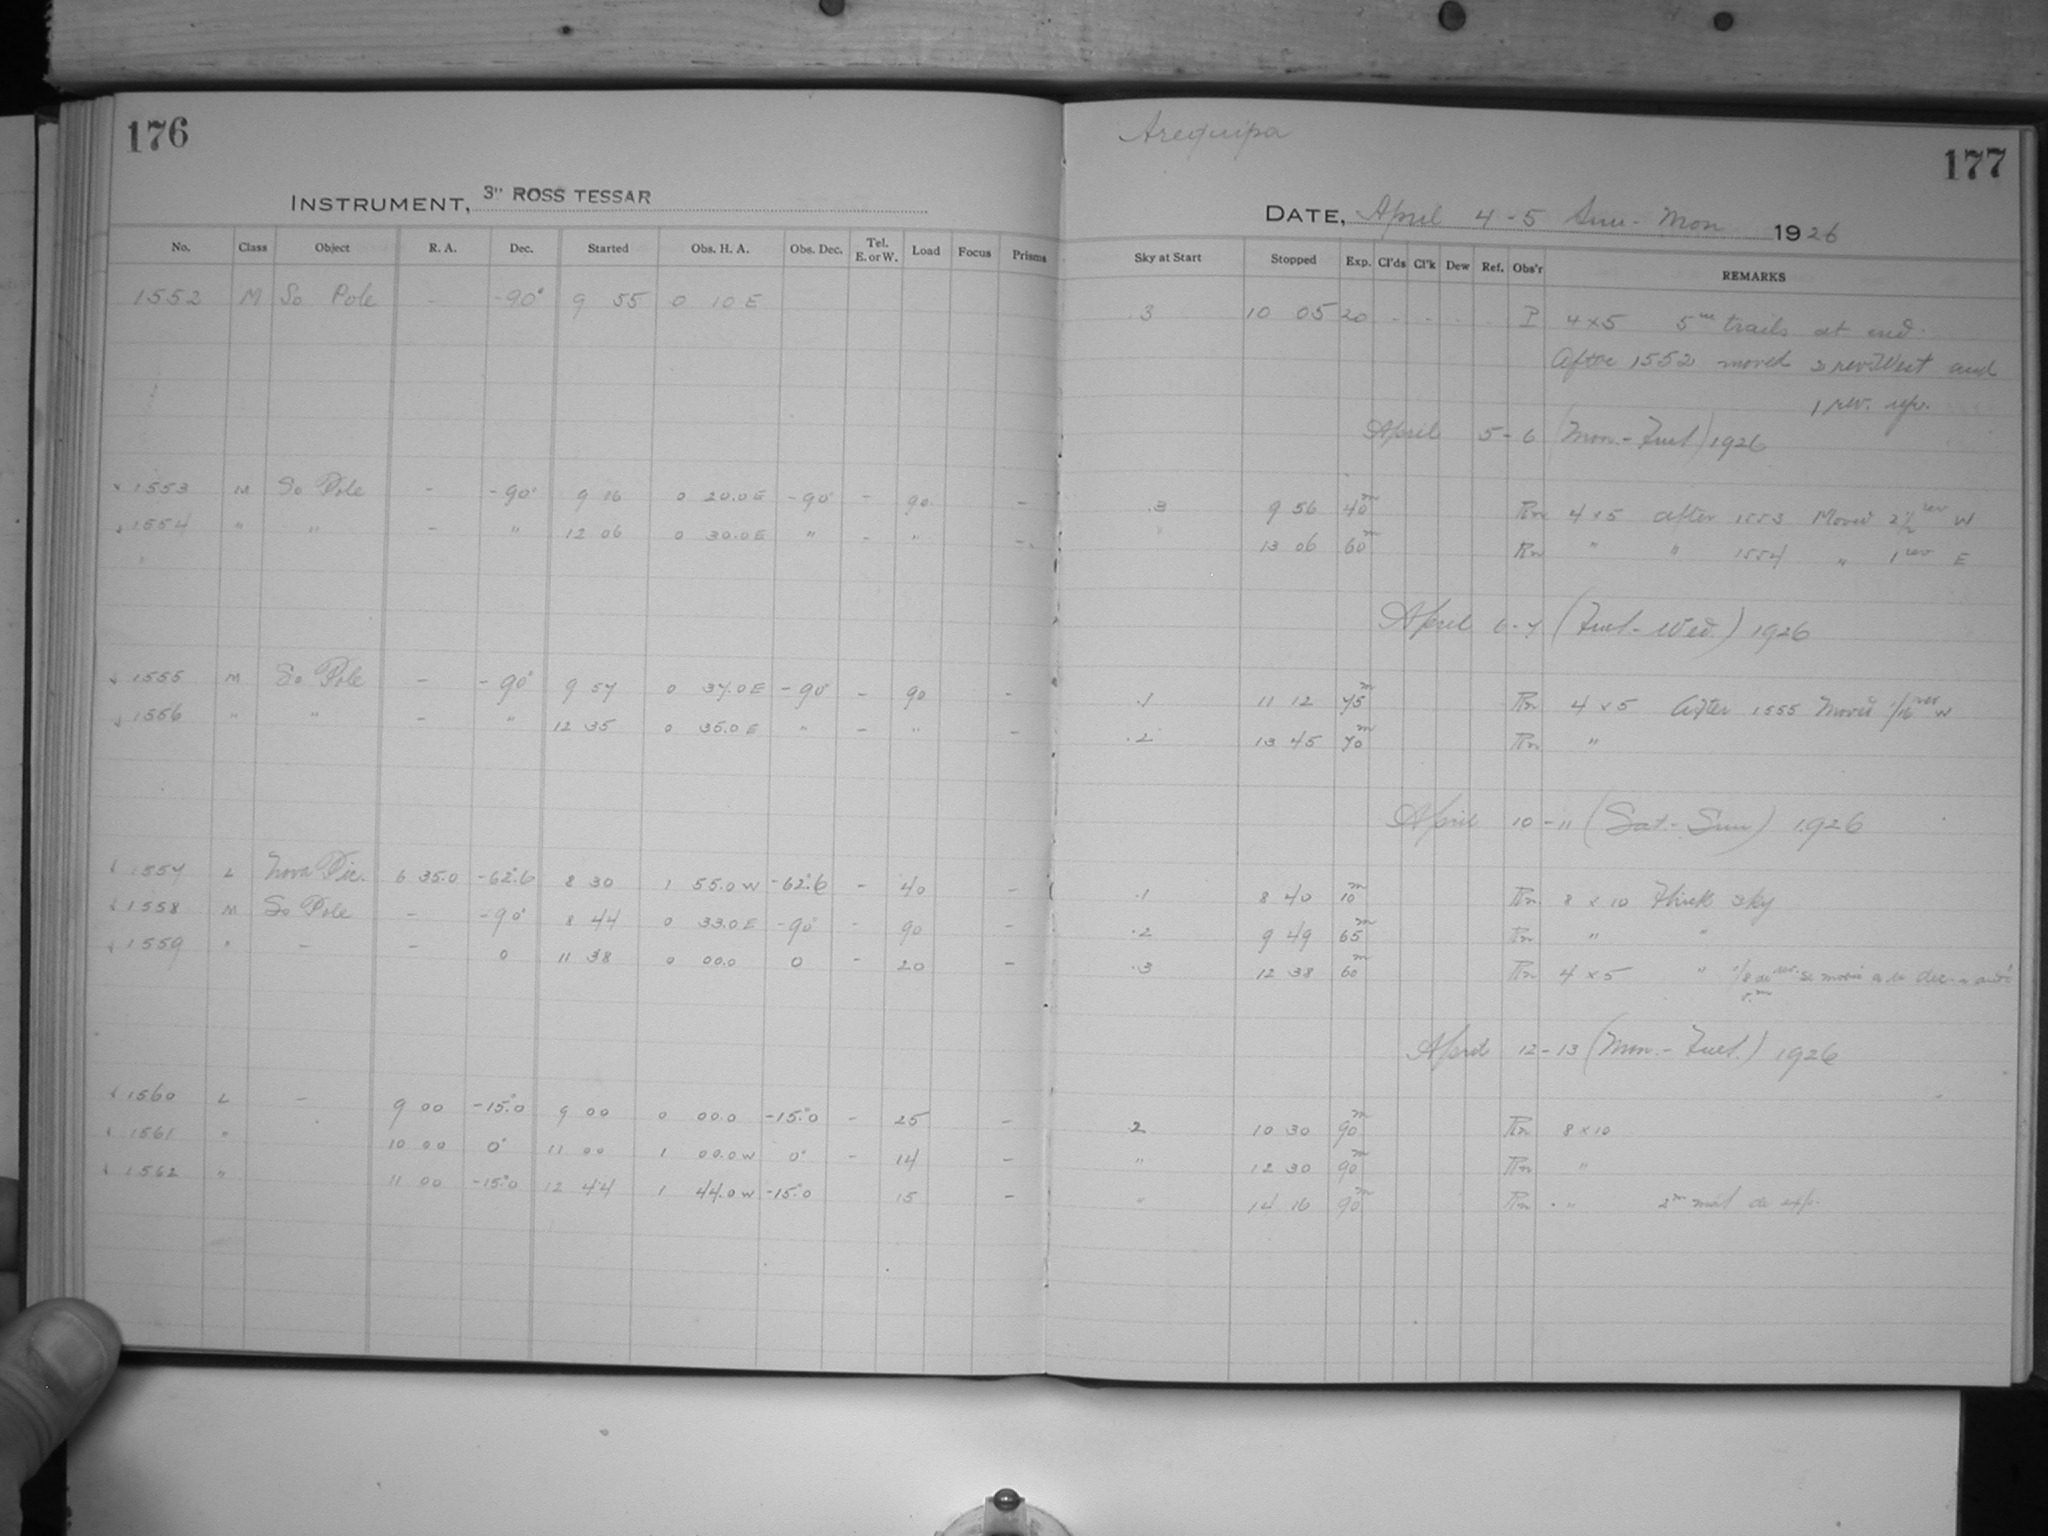 176
INSTRUMENT, 3" ROSS TESSAR
No. Class Object R. A. Dec. Started Obs. H. A. Obs. Dec. Tel. E. or W. Load Focus Prisms
1552 M So Pole - -90° 9 55 0 10 E
1553 M So Pole - -90° 9 16 0 20.0 E -90° - 90 -
1554 " " - " 12 06 0 30.0 E " - " -
1555 M So Pole - -90° 9 57 0 37.0 E -90° - 90 -
1556 " " - " 12 35 0 35.0 E " - " -
1557 L Nova Pic. 6 35.0 -62°.6 8 30 1 55.0 W -62°.6 - 40 -
1558 M So Pole - -90° 8 44 0 33.0 E -90° - 90 -
1559 " - - 0 11 38 0 00.0 0 - 20 -
1560 L - 9 00 -15°.0 9 00 0 00.0 -15°.0 - 25 -
1561 " 10 00 0° 11 00 1 00.0 W 0° - 14 -
1562 " 11 00 -15°.0 12 44 1 44.0 W -15°.0 15 -
Arequipa
177
DATE, April 4-5 Sun-Mon 1926
Sky at Start Stopped Exp. Cl'ds Cl'k Dew Ref. Obs'r REMARKS
.3 10 05 20 - - - - P 4x5 5m trails at end.
After 1552 moved 2 rev West and
1 rev. up.
April 5-6 (Mon.-Tues) 1926
.3 9 56 40m Rn 4x5 after 1553 Moved 2 1/2 rev W
" 13 06 60m Rn " " 1554 " 1 rev E
April 6-7 (Tues-Wed.) 1926
.1 11 12 75m Rn 4x5 After 1555 Moved 1/16 rev W
.2 13 45 70m Rn "
April 10-11 (Sat.-Sun) 1926
.1 8 40 10m Rn 8x10 Thick sky
.2 9 49 65m Rn " "
.3 12 38 60m Rn 4x5 " 1/8 de rev. se movió a la dec.
April 12-13 (Mon.-Tues.) 1926
.2 10 30 90m Rn 8x10
" 12 30 90m Rn "
" 14 16 90m Rn " 2m más de exp.